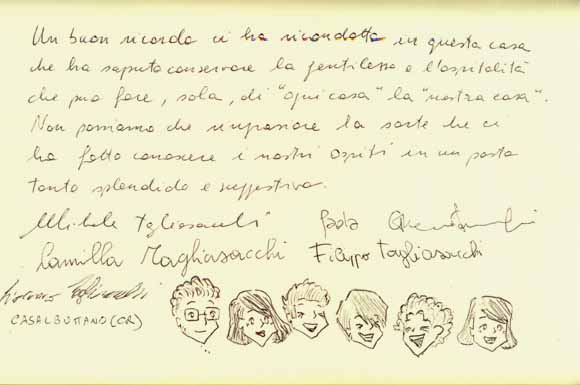 Un buon ricordo ci ha ricondotto in questa casa
che ha saputo conservare la gentilezza e l'ospitalità
che può fare, sola, di "ogni casa" la "nostra casa".
Non possiamo che ringraziare la sorte che ci
ha fatto conoscere i nostri Ospiti in un posto
tanto splendido e suggestivo.
Michele Tagliasacchi Paola
Camilla Tagliasacchi Filippo Tagliasacchi
Tagliasacchi
CASALBUTTANO (CR)